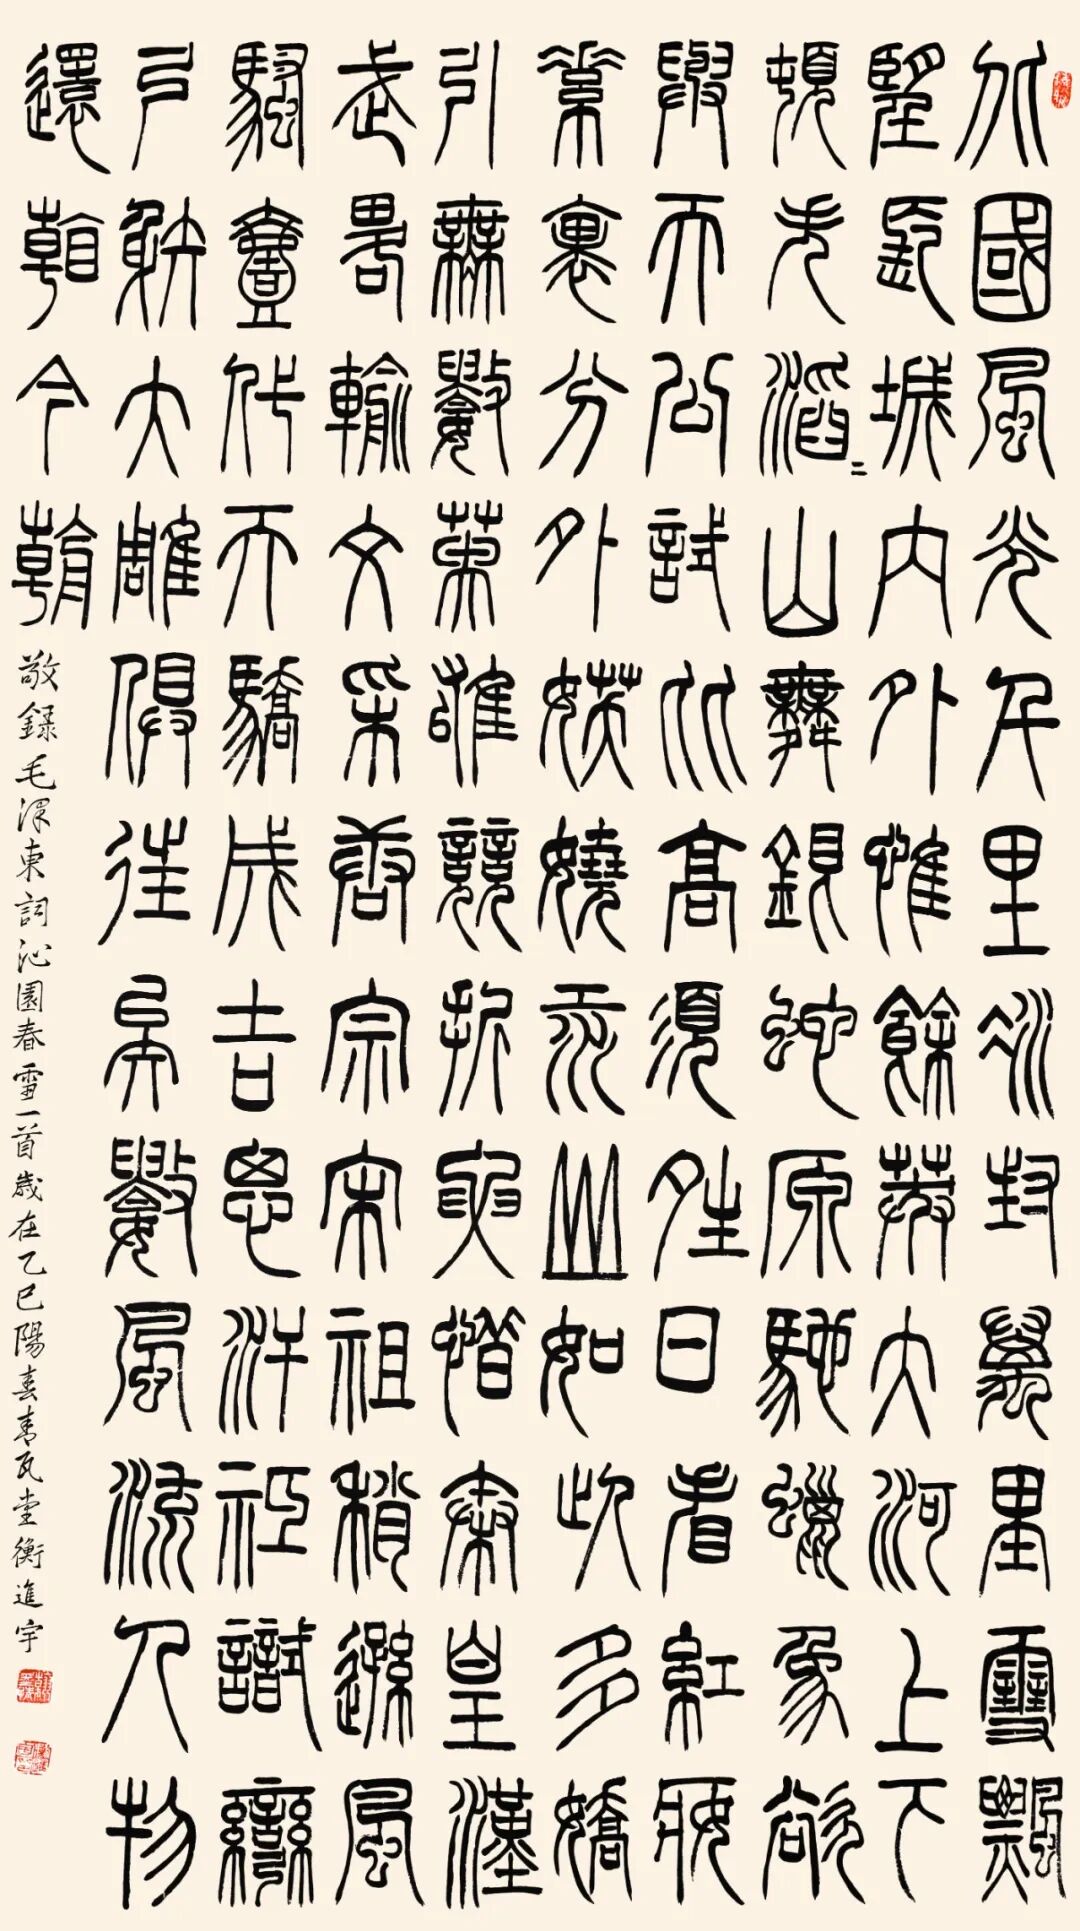 北國風光千里冰封萬里雪飄
望長城內外惟餘莽大河上下
頓失滔〻山舞銀蛇原馳蠟象欲
與天公試比高須晴日看紅妝
素裹分外妖嬈江山如此多嬌
引無數英雄競折腰惜秦皇漢
武略輸文采唐宗宋祖稍遜風
騷壹代天驕成吉思汗祇識彎
弓射大雕俱往矣數風流人物
還看今朝
敬錄毛澤東詞沁園春雪一首歲在乙巳陽春青瓦堂衡進宇